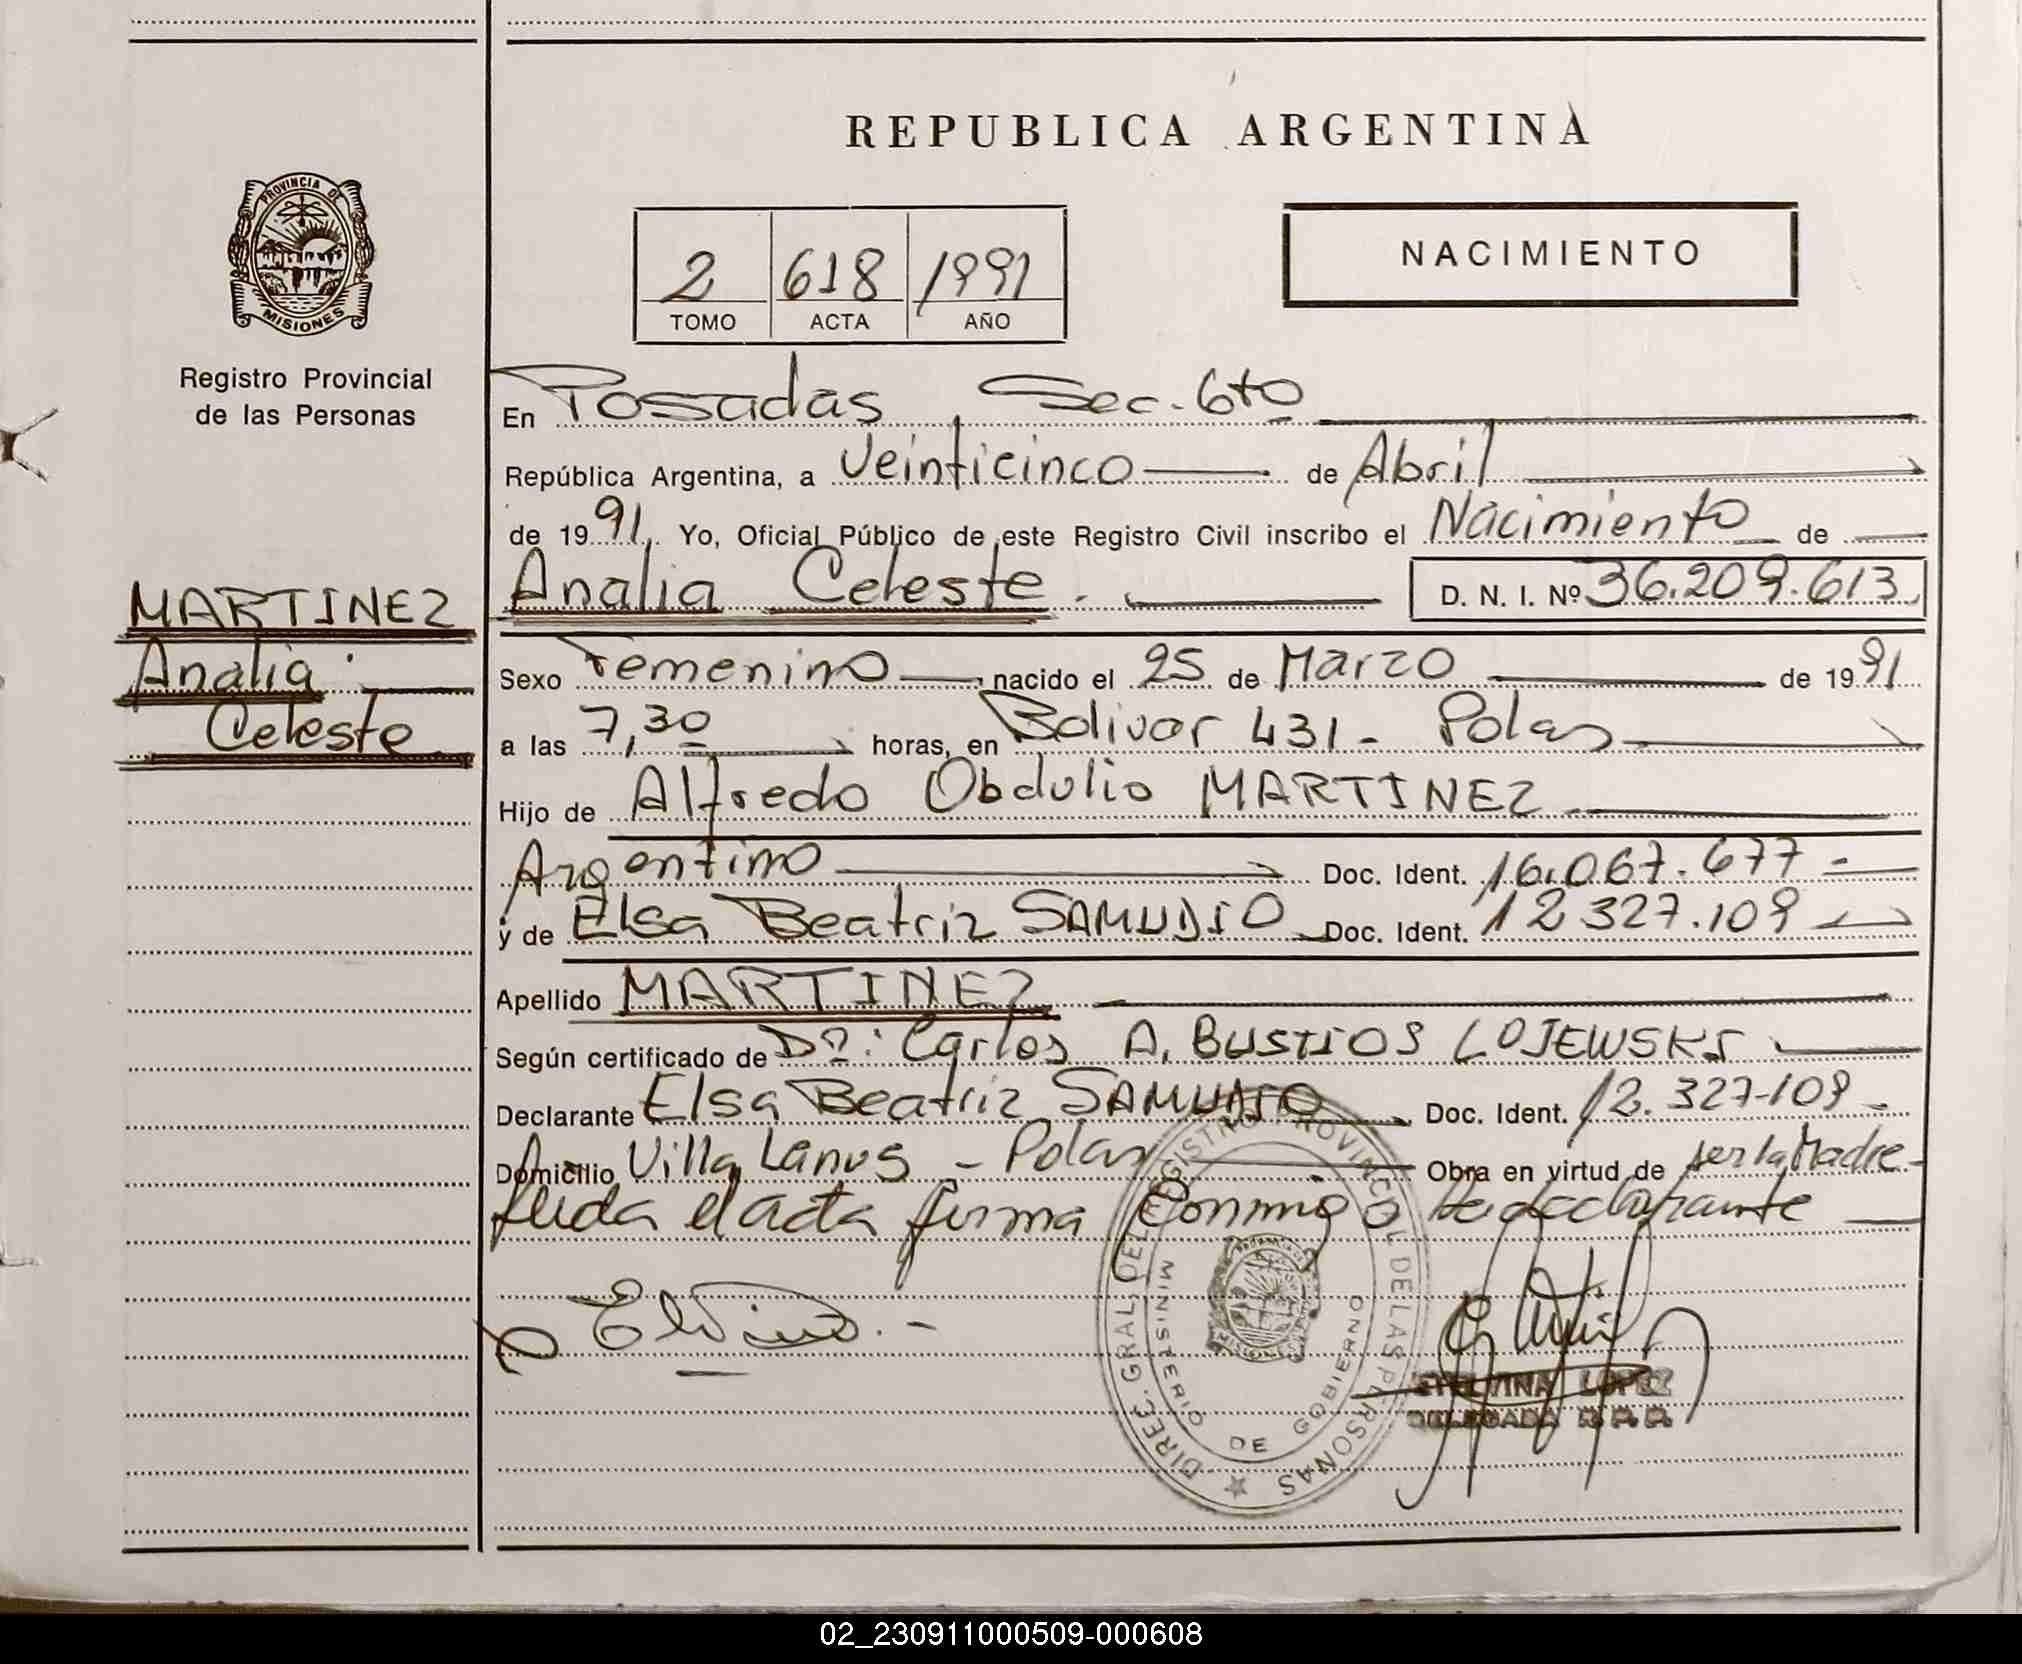 REPUBLICA ARGENTINA
PROVINCIA DE
MISIONES
Registro Provincial
de las Personas
2 618 1991
TOMO ACTA AÑO
NACIMIENTO
MARTINEZ
Analia
Celeste
En Posadas, Sec. 6to
República Argentina, a Veinticinco de Abril
de 1991. Yo, Oficial Público de este Registro Civil inscribo el Nacimiento de
Analia Celeste. D. N. I. Nº 36.209.613
Sexo Femenino nacido el 25 de Marzo de 1991
a las 7,30 horas, en Bolivar 431 - Pdas
Hijo de Alfredo Obdulio MARTINEZ
Argentino Doc. Ident. 16.067.677 -
y de Elsa Beatriz SAMUDIO Doc. Ident. 12327.109
Apellido MARTINEZ
Según certificado de Dr: Carlos A. BUSTIOS LOJEWSKI
Declarante Elsa Beatriz SAMUDIO Doc. Ident. 12.327.109 -
Domicilio Villa Lanus - Pdas Obra en virtud de ser la Madre
leida el acta firma conmigo la declarante
DIREC. GRAL. DEL REGISTRO PROVINCIAL DE LAS PERSONAS
MINISTERIO DE GOBIERNO
MISIONES
LOPEZ
DELEGADA R.P.P.
02_230911000509-000608